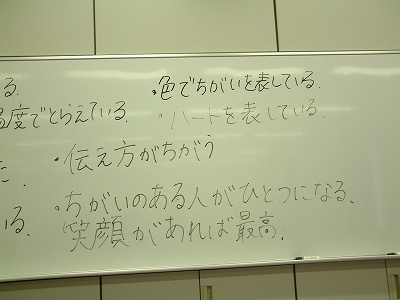 る.
・色でちがいを表している.
温度でとらえている.
・ハートを表している.
た.
・伝え方がちがう
いる.
・ちがいのある人がひとつになる、
笑顔があれば最高.